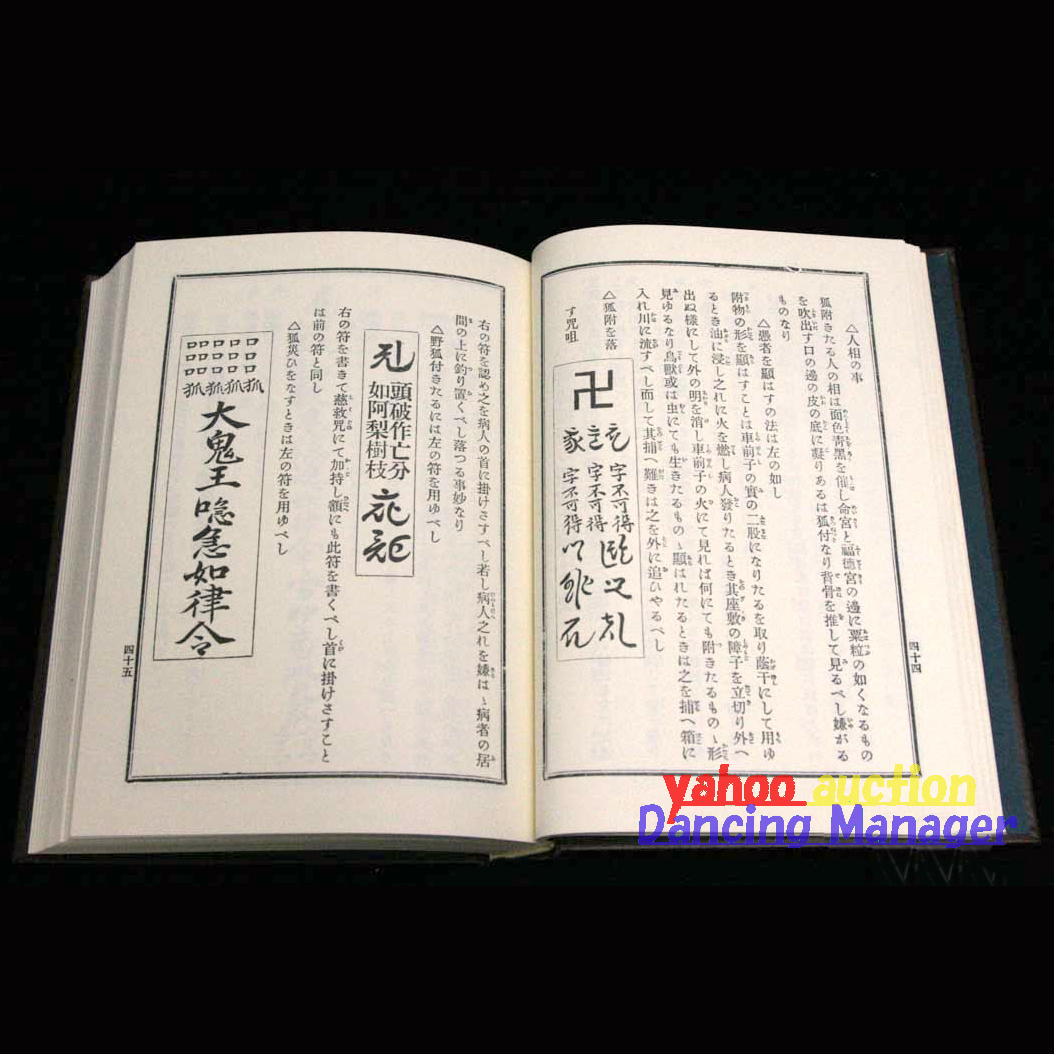 △人相の事
狐附きたる人の相は面色靑黑を催し命宮と福德宮の邊に粟粒の如くなるもの
を吹出す口の邊の皮の底に凝りあるは狐付なり背骨を推して見るべし嫌がる
ものなり
△愚者を顯はすの法は左の如し
附物の形を顯はすことは車前子の實の二股になりたるを取り蔭干にして用ゆ
るとき油に浸し之れに火を燃し病人發りたるとき其座敷の障子を立切り外へ
出ぬ樣にして外の明を消し車前子の火にて見れば何にても附きたるものゝ形
見ゆるなり鳥獸或は虫にても生きたるものゝ顯はれたるときは之を捕へ箱に
入れ川に流すべし而して其捕へ難きは之を外に追ひやるべし
△狐附を落
す咒咀
卍
字不可得
字不可得
字不可得
四十四
右の符を認め之を病人の首に掛けさすべし若し病人之れを嫌はゝ病者の居
間の上に釣り置くべし落つる事妙なり
△野狐付きたるには左の符を用ゆべし
頭破作亡分
如阿梨樹枝
右の符を書きて慈救咒にて加持し額にも此符を書くべし首に掛けさすこと
は前の符と同し
△狐災ひをなすときは左の符を用ゆべし
口口口口
口口口口
口口口口
狐狐狐狐
大鬼王唸急如律令
四十五
yahoo auction
Dancing Manager